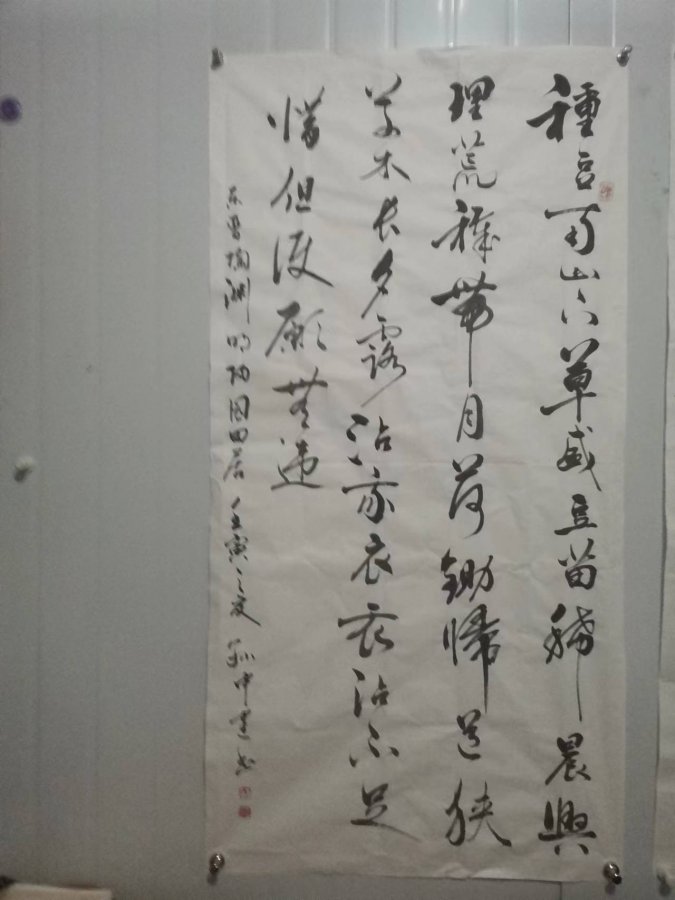 種豆南山下草盛豆苗稀晨興
理荒穢帶月荷鋤歸道狹
草木長夕露沾我衣衣沾不足
惜但使願無違
东晋陶渊明归园田居 壬寅之夏 孙中书